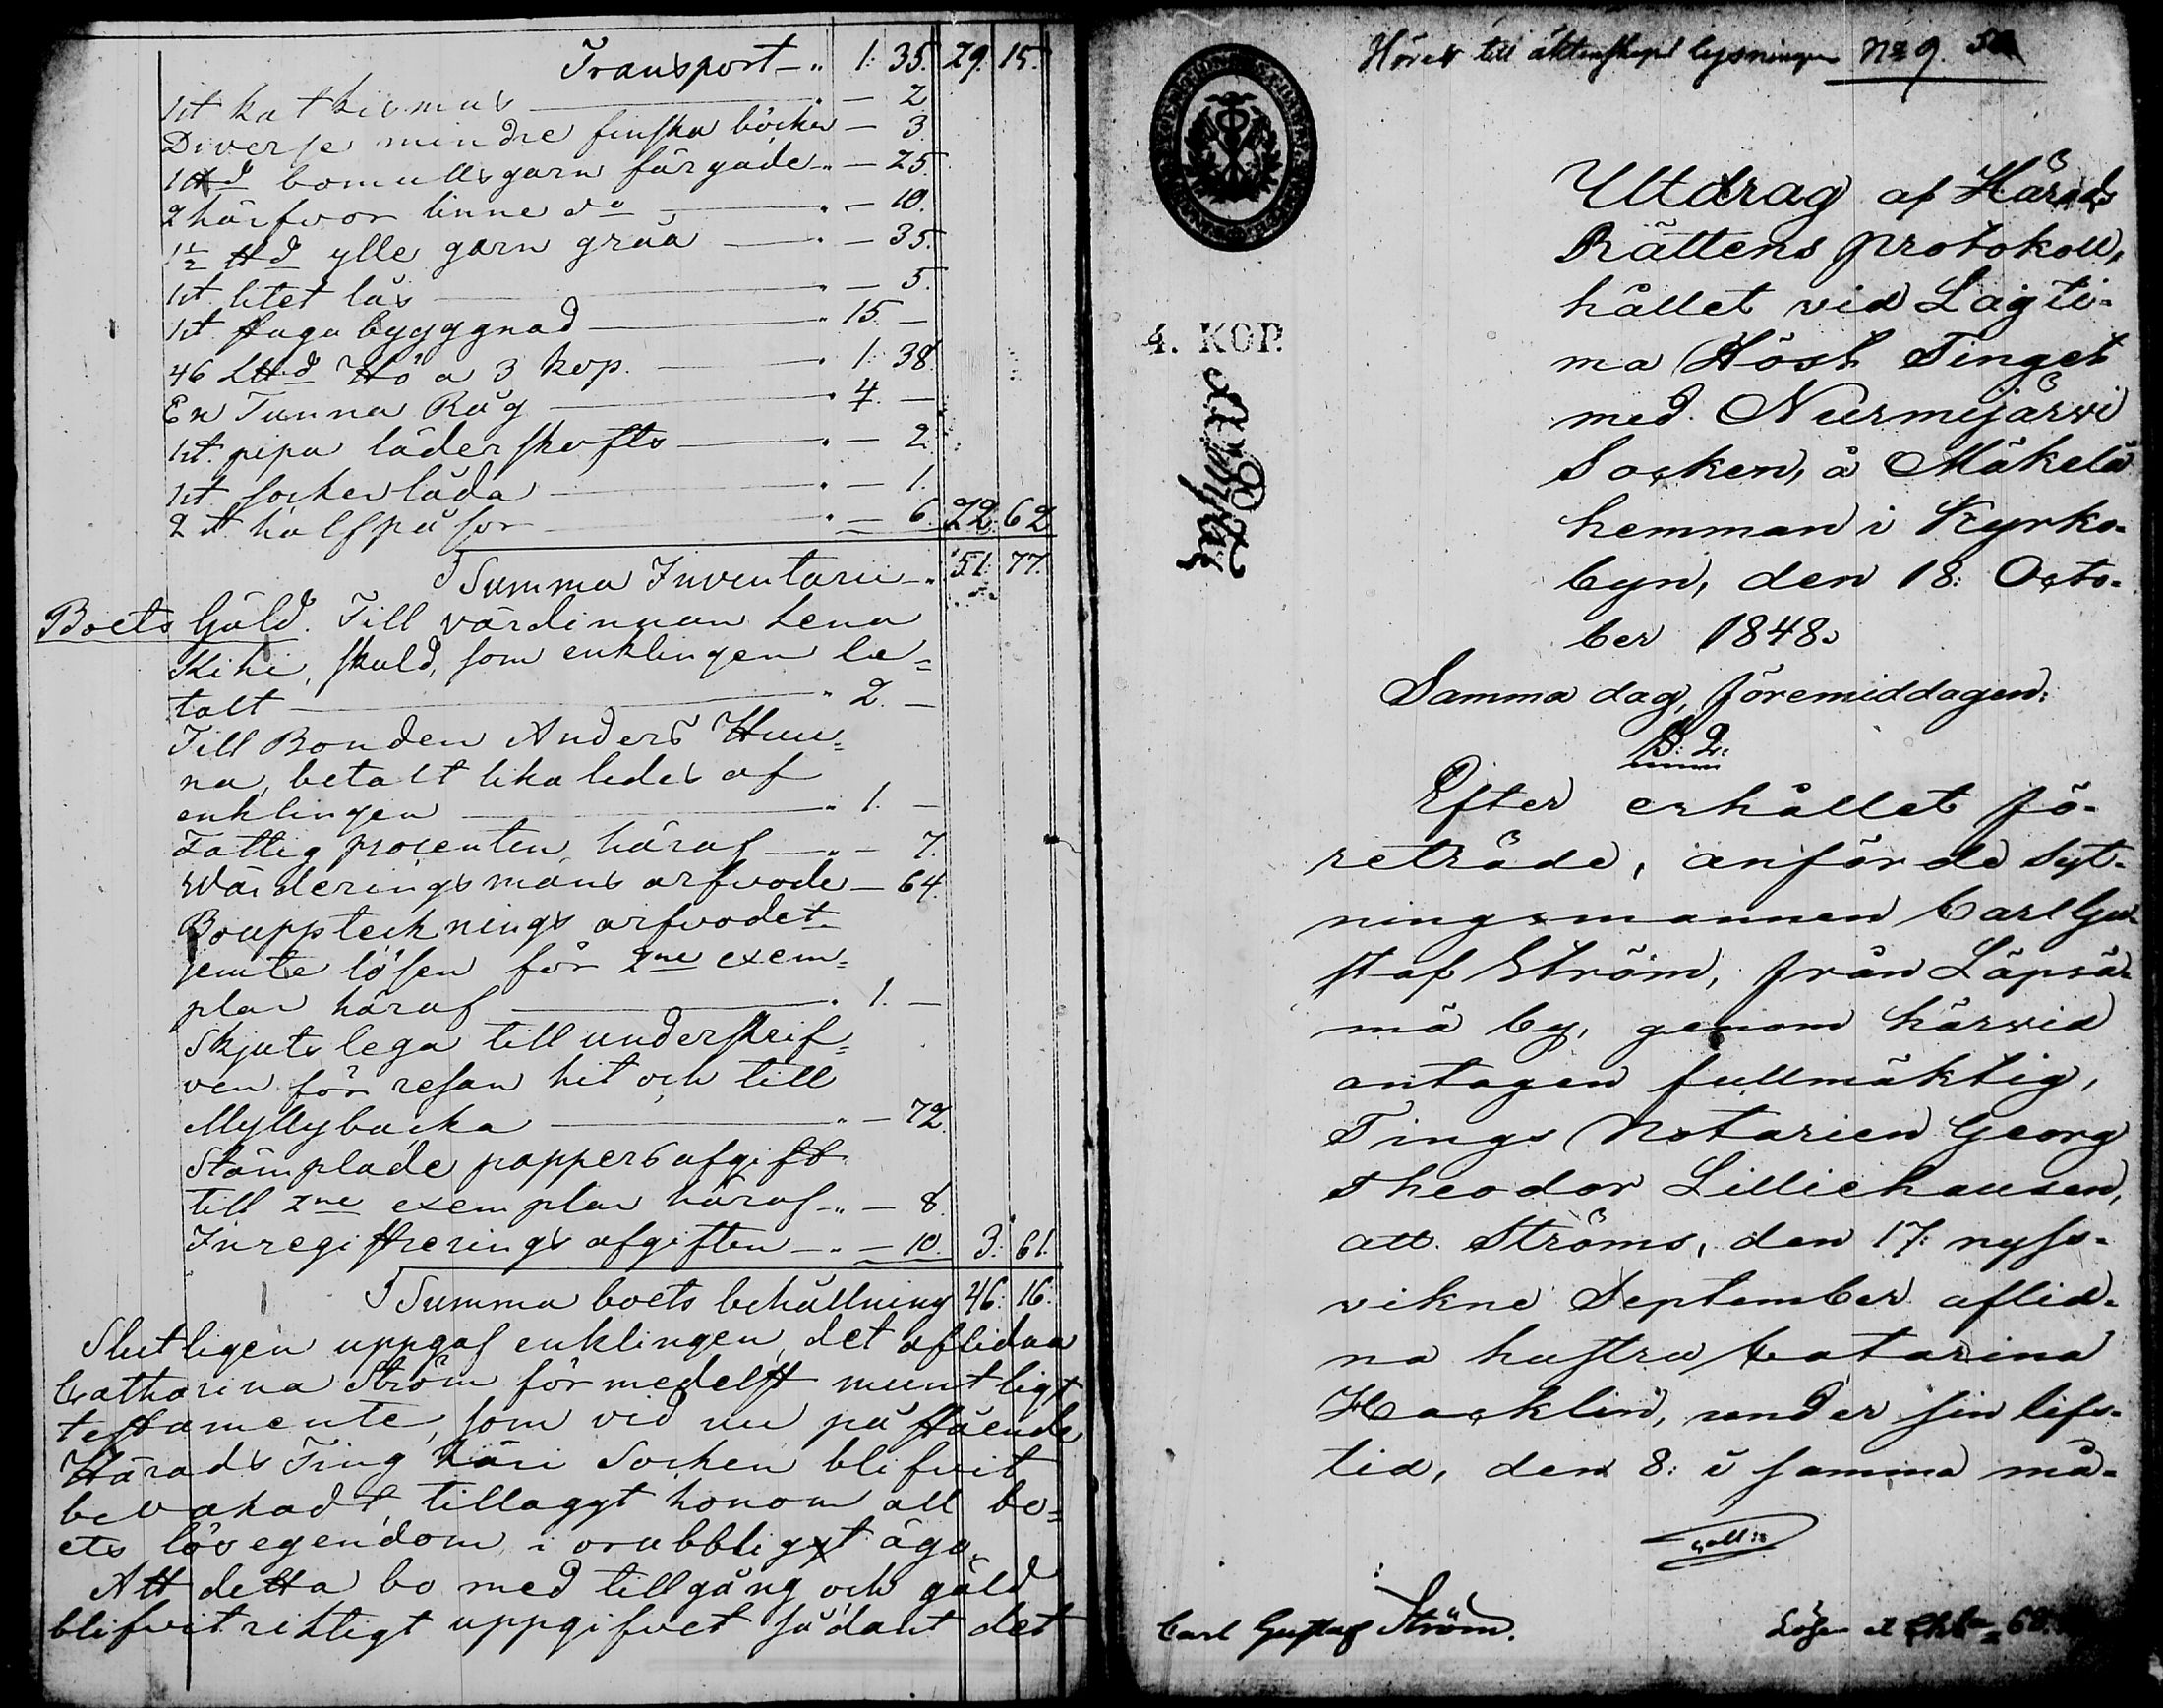 Transport _ " 1: 35. 29. 15.
1 st kathismus " — 2
Diverse mindre finska böcker — 3.
1 ℔d bomullsgarn färgade " — 25.
2 härfvor linne do " — 10.
1½ ℔d ylle garn gråa " — 35.
1 st litet lås " — 5.
1 st stuga bygggnad " 15. —
46 L℔d Hö a 3 kop. " 1: 38
En Tunna Råg " 4. —
1 st. pipa läderskafts " — 2
1 st sockerlåda " — 1.
2 st halfpåsor " — 6. 22. 62
Summa Inventarii _ " 51: 77.
Boets Gäld. Till värdinnan Lena
Kihi, skuld, som enklingen be=
talt " 2. —
Till Bonden Anders Huu=
na, betalt lika ledes af
enklingen " 1. —
Fattig procenten häraf " — 7.
Wärderingsmans arfvode — 64.
Boupptecknings arfvodet
jemte lösen för 2ne exem=
plar häraf " 1. —
Skjuts lega till underskrif=
ven för resan hit och till
Myllybacka " — 72.
Stämplade pappers afgift
till 2ne exemplar häraf " — 8.
Inregistrerings afgiften _ " — 10. 3. 61.
Summa boets behållning 46: 16.
Slutligen uppgaf enklingen, det aflidna
Catharina Ström förmedelst muntligt
testamente, som vid nu på stående
Härads Ting häri Socken blifvit
bevakadt, tillaggt honom all bo=
ets lösegendom i orubbligt ägo.
Att detta bo med tillgång och gäld
blifvit riktigt uppgifvet sådant det
Hörer till äktenskaps lysningen No 9.
4. KOP.
Utdrag af Härads
Rättens protokoll,
hållet vid Lagti-
ma Höst Tinget
med Nurmijärvi
Socken, å Mäkelä
hemman i Kyrko-
byn, den 18: Octo-
ber 1848.
Samma dag, föremiddagen.
§: 2.
Efter erhållet fö-
reträde, anförde Syt-
ningsmannen Carl Gu-
staf Ström, från Läpsä-
mä by, genom härvid
antagen fullmäktig,
Tings Notarien Georg
Theodor Lilliehausen,
att Ströms, den 17: nyss-
vikne September aflid-
na hustru Catarina
Hacklin, under sin lifs-
tid, den 8: i samma må-
Carl Gustaf Ström.
Lösen